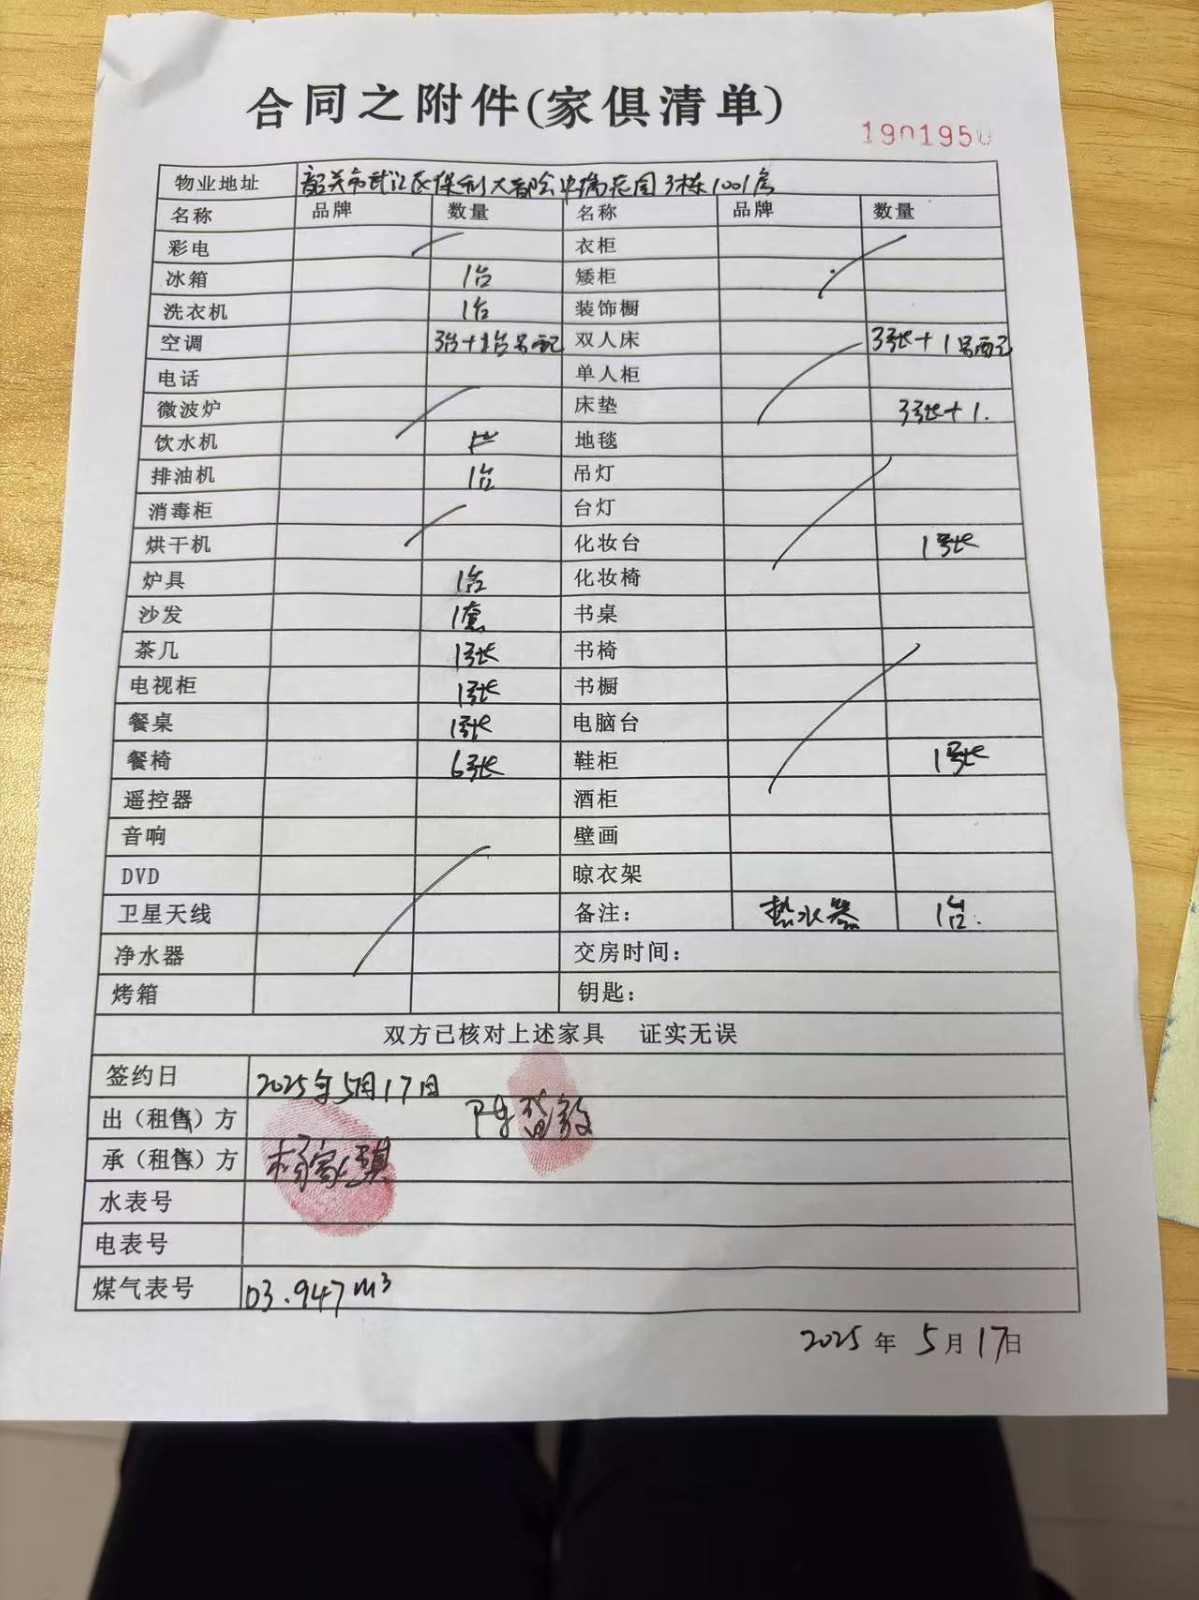 合同之附件(家俱清单)
1901950
物业地址 韶关市武江区保利大都会中瑞花园3栋1001房
名称 品牌 数量 名称 品牌 数量
彩电 衣柜
冰箱 1台 矮柜
洗衣机 1台 装饰橱
空调 3台+1台另配 双人床 3张+1另配
电话 单人柜
微波炉 床垫 3张+1.
饮水机 地毯
排油机 1台 吊灯
消毒柜 台灯
烘干机 化妆台 1张
炉具 1台 化妆椅
沙发 1套 书桌
茶几 1张 书椅
电视柜 1张 书橱
餐桌 1张 电脑台
餐椅 6张 鞋柜 1张
遥控器 酒柜
音响 壁画
DVD 晾衣架
卫星天线 备注: 热水器 1台.
净水器 交房时间:
烤箱 钥匙:
双方已核对上述家具 证实无误
签约日 2025年5月17日
出（租售）方
承（租售）方 杨家骐
水表号
电表号
煤气表号 03.947m³
2025年5月17日